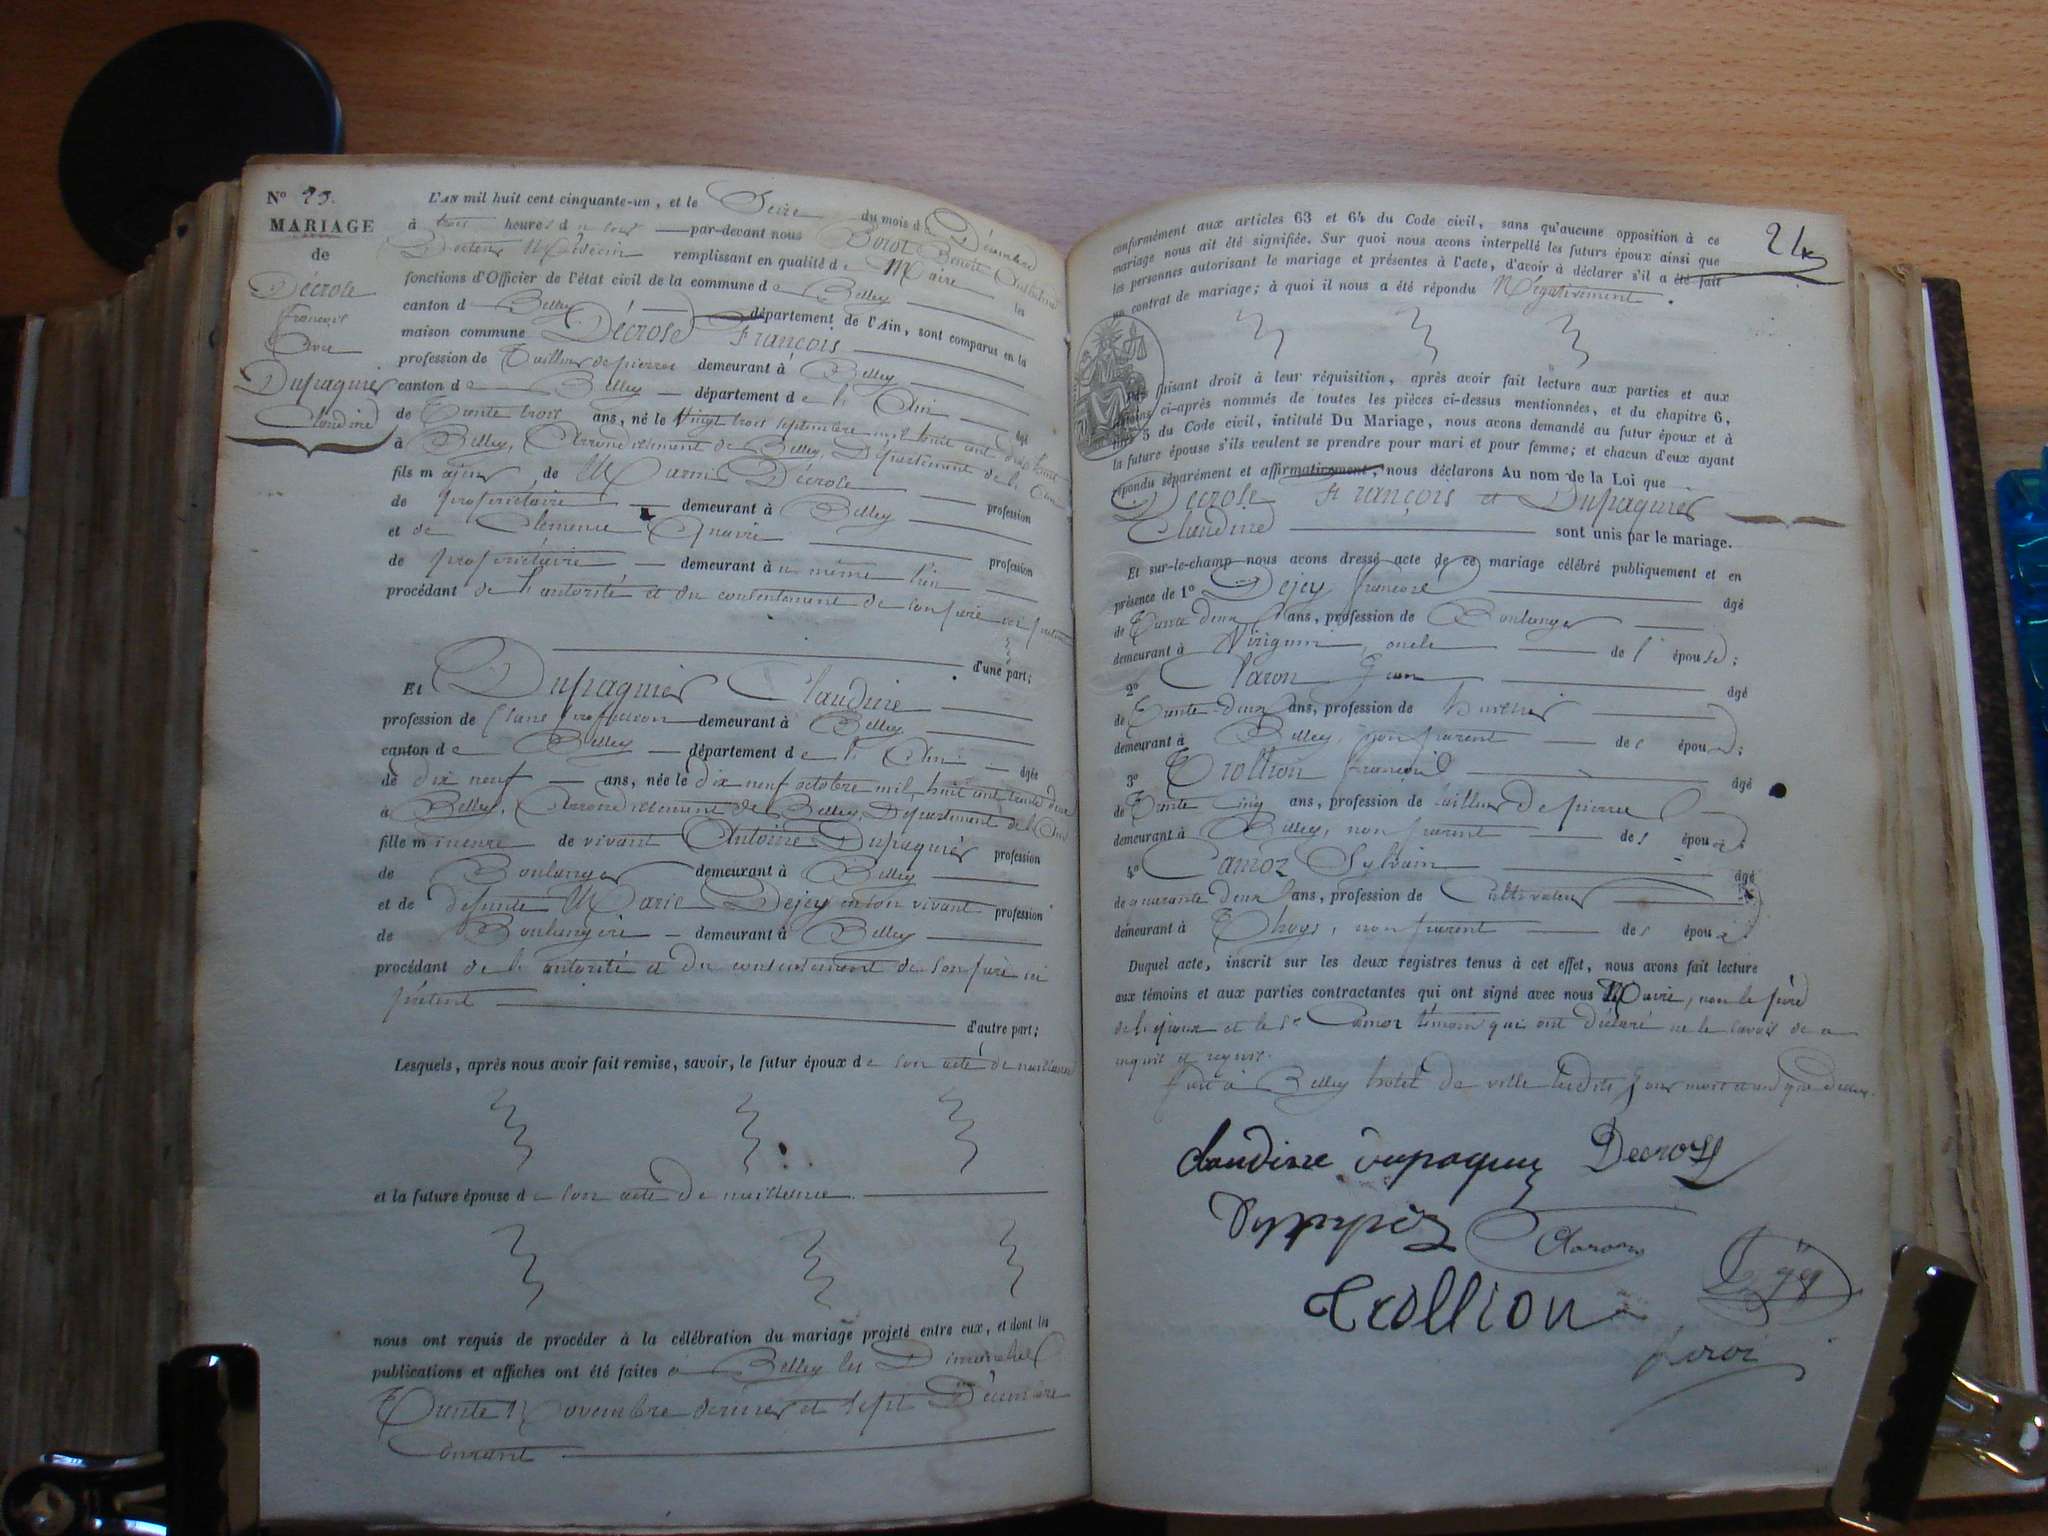 N° 23.
MARIAGE
de
Décrose
françois
Avec
Dupaquier
Claudine
L'AN mil huit cent cinquante-un, et le Seize du mois de Décembre
à trois heures du soir par-devant nous Benoit
Docteur Médecin remplissant en qualité de Maire les
fonctions d'Officier de l'état civil de la commune de Belley
canton de Belley département de l'Ain, sont comparus en la
maison commune Décrose François
profession de Tailleur de pierres demeurant à Belley
canton de Belley département de l'Ain âgé
de Trente trois ans, né le Vingt trois septembre mil huit cent dix huit
à Belley, Arrondissement de Belley, Département de l'Ain
fils majeur de Décrose profession
de propriétaire demeurant à Belley
et de Clémence profession
de propriétaire demeurant au même lieu
procédant de l'autorité et du consentement de son père ici présent
d'une part;
Et Dupaquier Claudine
profession de sans profession demeurant à Belley
canton de Belley département de l'Ain âgée
de dix neuf ans, née le dix neuf octobre mil huit cent trente deux
à Belley, Arrondissement de Belley, Département de l'Ain
fille mineure de vivant Antoine Dupaquier profession
de Boulanger demeurant à Belley
et de défunte Marie Dejey en son vivant profession
de Boulangère demeurant à Belley
procédant de l'autorité et du consentement de son père ici
présent
d'autre part;
Lesquels, après nous avoir fait remise, savoir, le futur époux de son acte de naissance
et la future épouse de son acte de naissance.
nous ont requis de procéder à la célébration du mariage projeté entre eux, et dont les
publications et affiches ont été faites à Belley les Dimanches
Trente Novembre dernier et sept Décembre
Courant
conformément aux articles 63 et 64 du Code civil, sans qu'aucune opposition à ce
mariage nous ait été signifiée. Sur quoi nous avons interpellé les futurs époux ainsi que
les personnes autorisant le mariage et présentes à l'acte, d'avoir à déclarer s'il a été fait
un contrat de mariage; à quoi il nous a été répondu Négativement.
faisant droit à leur réquisition, après avoir fait lecture aux parties et aux
témoins ci-après nommés de toutes les pièces ci-dessus mentionnées, et du chapitre 6,
titre 5 du Code civil, intitulé Du Mariage, nous avons demandé au futur époux et à
la future épouse s'ils veulent se prendre pour mari et pour femme; et chacun d'eux ayant
répondu séparément et affirmativement, nous déclarons Au nom de la Loi que
Décrose François et Dupaquier
Claudine sont unis par le mariage.
Et sur-le-champ nous avons dressé acte de ce mariage célébré publiquement et en
présence de 1° Dejey françois âgé
de Trente deux ans, profession de Boulanger
demeurant à Virignin, oncle de l'épouse;
2° Claron Jean âgé
de Trente deux ans, profession de huissier
demeurant à Belley, non parent des époux;
3° Trollion françois âgé
de Trente cinq ans, profession de tailleur de pierre
demeurant à Belley, non parent des époux
4° Camoz Sylvain âgé
de quarante deux ans, profession de Cultivateur
demeurant à Thoys, non parent des époux
Duquel acte, inscrit sur les deux registres tenus à cet effet, nous avons fait lecture
aux témoins et aux parties contractantes qui ont signé avec nous Maire, non le père
de l'époux et le Sr Camoz témoin qui ont déclaré ne le savoir de ce
enquis et requis.
fait à Belley hôtel de ville les dits jour mois et an que dessus.
claudine dupaquier Decrose
Claron
Trollion